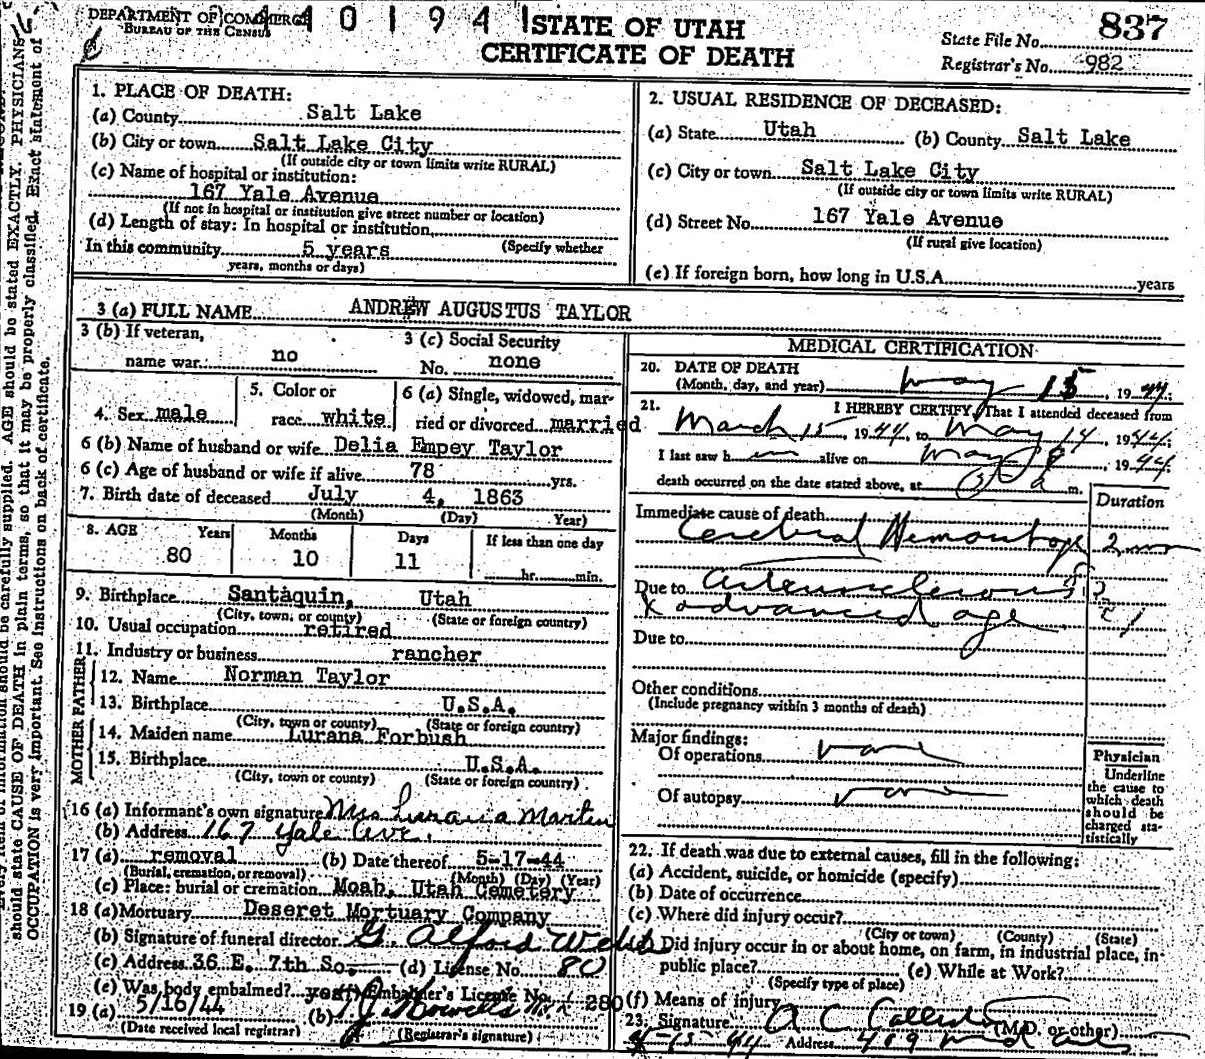 DEPARTMENT OF COMMERCE
BUREAU OF THE CENSUS
4 4 0 1 9 4 1
STATE OF UTAH
CERTIFICATE OF DEATH
State File No. 837
Registrar's No. 982
1. PLACE OF DEATH:
(a) County Salt Lake
(b) City or town Salt Lake City
(If outside city or town limits write RURAL)
(c) Name of hospital or institution:
167 Yale Avenue
(If not in hospital or institution give street number or location)
(d) Length of stay: In hospital or institution
In this community 5 years (Specify whether
years, months or days)
2. USUAL RESIDENCE OF DECEASED:
(a) State Utah (b) County Salt Lake
(c) City or town Salt Lake City
(If outside city or town limits write RURAL)
(d) Street No. 167 Yale Avenue
(If rural give location)
(e) If foreign born, how long in U.S.A. years
3 (a) FULL NAME ANDREW AUGUSTUS TAYLOR
3 (b) If veteran,
name war: no
3 (c) Social Security
No. none
4. Sex male
5. Color or
race white
6 (a) Single, widowed, mar-
ried or divorced married
6 (b) Name of husband or wife Delia Empey Taylor
6 (c) Age of husband or wife if alive 78 yrs.
7. Birth date of deceased July 4, 1863
(Month) (Day) Year)
8. AGE Years Months Days If less than one day
80 10 11 hr. min.
9. Birthplace Santaquin, Utah
(City, town, or county) (State or foreign country)
10. Usual occupation retired
11. Industry or business rancher
FATHER
12. Name Norman Taylor
13. Birthplace U.S.A.
(City, town or county) (State or foreign country)
MOTHER
14. Maiden name Lurana Forbush
15. Birthplace U.S.A.
(City, town or county) (State or foreign country)
16 (a) Informant's own signature Mrs Lurana Martin
(b) Address 167 Yale Ave.
17 (a) removal (b) Date thereof 5-17-44
(Burial, cremation, or removal) (Month) (Day) (Year)
(c) Place: burial or cremation Moab, Utah Cemetery
18 (a) Mortuary Deseret Mortuary Company
(b) Signature of funeral director G. Alford
(c) Address 36 E. 7th So. (d) License No. 80
(e) Was body embalmed? yes (f) Embalmer's License No. 280
19 (a) 5/16/44 (b)
(Date received local registrar) (Registrar's signature)
MEDICAL CERTIFICATION
20. DATE OF DEATH
(Month, day, and year) May 15, 1944:
21. I HEREBY CERTIFY, That I attended deceased from
March 15, 1944, to May 14, 1944:
I last saw h im alive on May 8, 1944
death occurred on the date stated above, at m.
Duration
Immediate cause of death
Cerebral Hemorrhage 2 mo
Due to arteriosclerosis ?
& advanced age
Due to
Other conditions
(Include pregnancy within 3 months of death)
Major findings:
Of operations none
Of autopsy none
Physician
Underline
the cause to
which death
should be
charged sta-
tistically
22. If death was due to external causes, fill in the following:
(a) Accident, suicide, or homicide (specify)
(b) Date of occurrence
(c) Where did injury occur?
(City or town) (County) (State)
Did injury occur in or about home, on farm, in industrial place, in
public place? (e) While at Work?
(Specify type of place)
(f) Means of injury
23. Signature A C (M.D. or other)
Address 409
should state CAUSE OF DEATH in plain terms, so that it may be properly classified. Exact statement of
OCCUPATION is very important. See instructions on back of certificate.
should be carefully supplied. AGE should be stated EXACTLY. PHYSICIANS